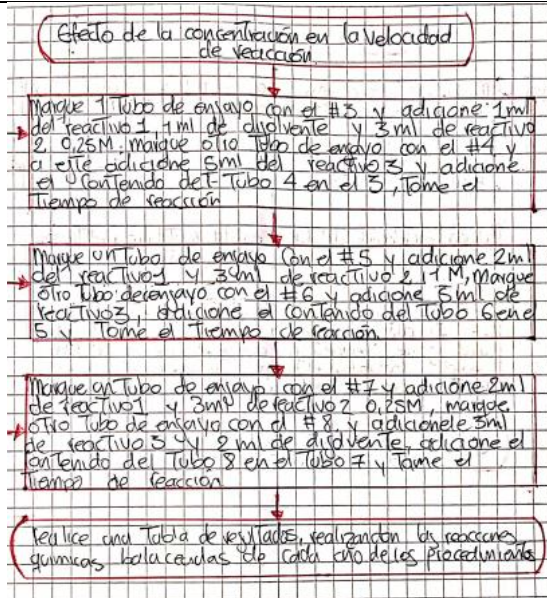 Efecto de la concentración en la velocidad
de reacción
Marque 1 Tubo de ensayo con el #3 y adicione 1ml
del reactivo 1, 1 ml de disolvente y 3 ml de reactivo
2 0,25M, marque otro Tubo de ensayo con el #4 y
a este adicione 5ml del reactivo 3 y adicione
el contenido del Tubo 4 en el 3, Tome el
Tiempo de reacción
Marque un Tubo de ensayo con el #5 y adicione 2ml
del reactivo 1 y 3 ml de reactivo 2 1 M, Marque
otro Tubo de ensayo con el #6 y adicione 5ml de
reactivo 3, adicione el contenido del Tubo 6 en el
5 y Tome el Tiempo de reacción.
Marque un Tubo de ensayo con el #7 y adicione 2ml
de reactivo 1 y 3ml de reactivo 2 0,25M, marque
otro Tubo de ensayo con el #8 y adicionele 5ml
de reactivo 3 y 2 ml de disolvente, adicione el
contenido del Tubo 8 en el Tubo 7 y Tome el
Tiempo de reacción
realice una Tabla de resultados, realizandon las reacciones
quimicas balaceadas de cada uno de los procedimientos